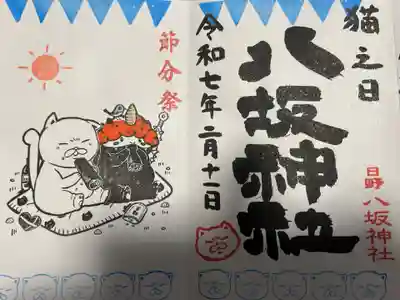 猫之日
八坂神社
日野八坂神社
令和七年二月十一日
節分祭